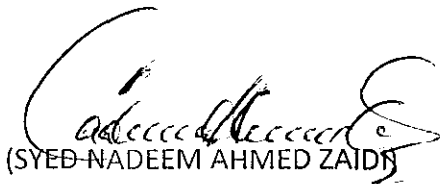 (SYED NADEEM AHMED ZAIDI)